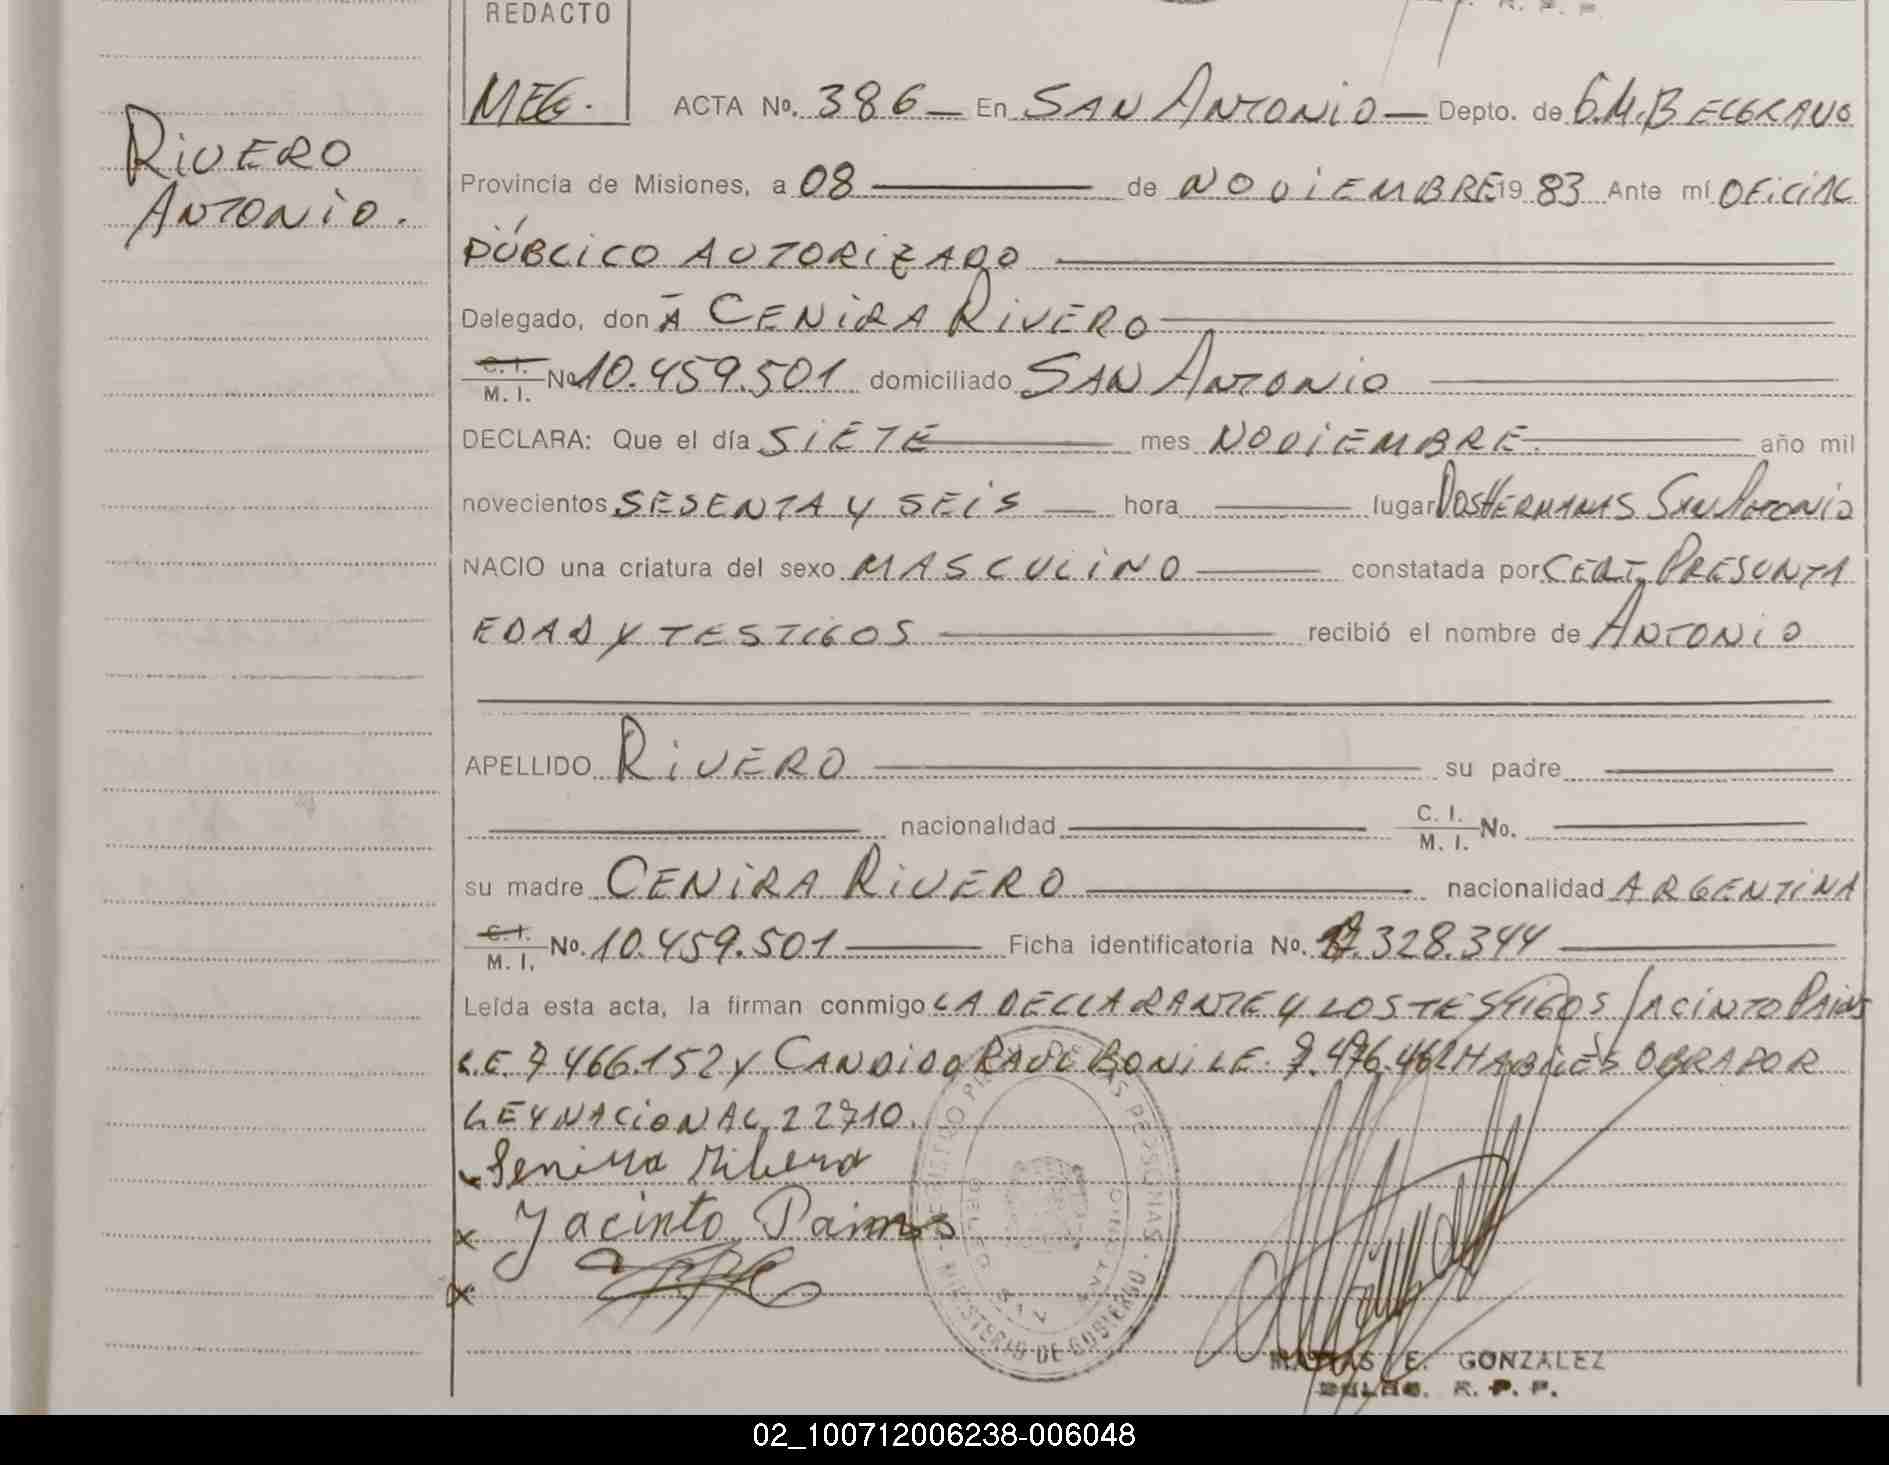 REDACTO
MEG.
RIVERO
ANTONIO.
ACTA No. 386 — En SAN ANTONIO — Depto. de G.M.BELGRANO
Provincia de Misiones, a 08 de NOVIEMBRE 19 83 Ante mí OFICIAL
PÚBLICO AUTORIZADO
Delegado, don A CENIRA RIVERO
C. I. M. I. No 10.459.501 domiciliado SAN ANTONIO
DECLARA: Que el día SIETE mes NOVIEMBRE. año mil
novecientos SESENTA Y SEIS — hora — lugar DOS HERMANAS SAN ANTONIO
NACIO una criatura del sexo MASCULINO — constatada por CERT. PRESUNTA
EDAD Y TESTIGOS — recibió el nombre de ANTONIO
APELLIDO RIVERO — su padre
nacionalidad — C. I. M. I. No.
su madre CENIRA RIVERO — nacionalidad ARGENTINA
C. I. M. I. No. 10.459.501 — Ficha identificatoria No. 328.344
Leída esta acta, la firman conmigo LA DECLARANTE Y LOS TESTIGOS JACINTO PAINS
L.E. 7.466.152 Y CANDIDO RAUL BONI L.E. HABILES OBRADOR
LEY NACIONAL 22710.
Senira Ribera
x Jacinto Pains
x
MINISTERIO DE GOBIERNO
MATIAS E. GONZALEZ
DELEG. R. P. P.
02_100712006238-006048